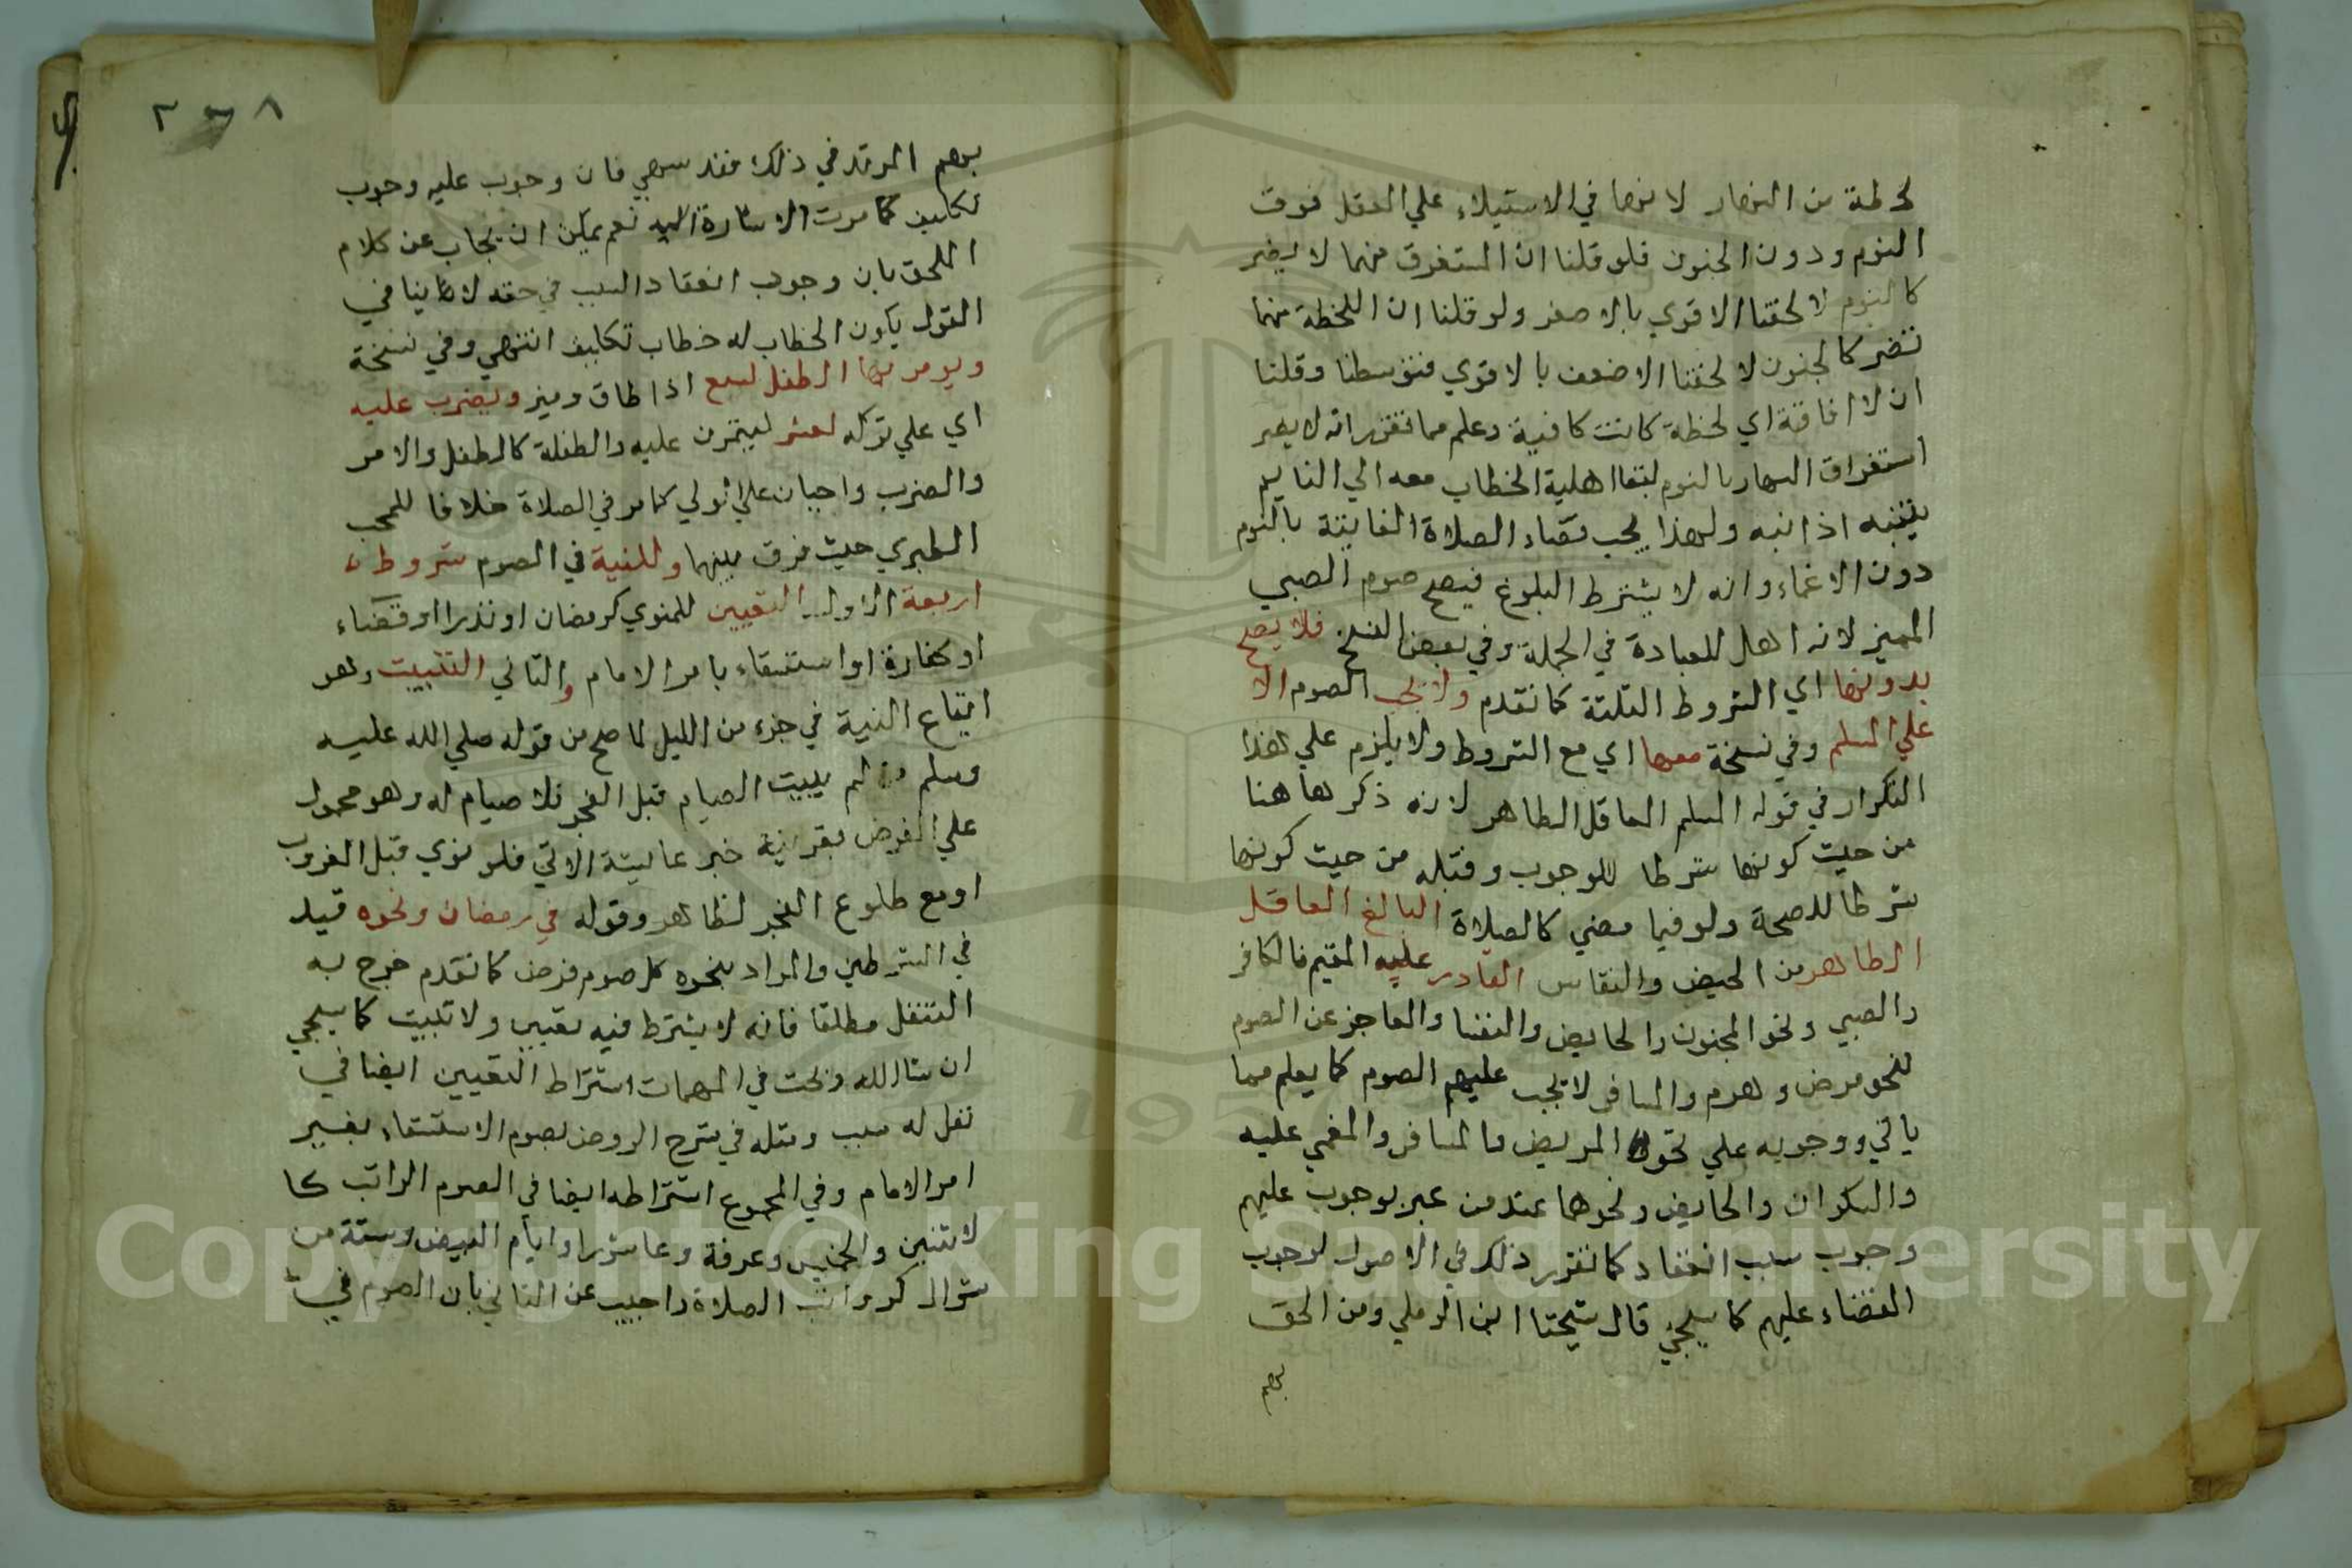 لحظة من النهار لانها في الاستيلاء علي العقل فوق
النوم ودون الجنون فلو قلنا ان المستغرق منهما لا يضر
كالنوم لالحقنا الاقوي بالاضعف ولو قلنا ان اللحظة منهما
تضر كالجنون لالحقنا الاضعف بالاقوي فتوسطنا وقلنا
ان الافاقة اي لحظة كانت كافية وعلم مما تقرر انه لا يضر
استغراق النهار بالنوم لبقا اهلية الخطاب معه الي النايم
يتنبه اذا نبه ولهذا يجب قضاء الصلاة الفايتة بالنوم
دون الاغماء وانه لا يشترط البلوغ فيصح صوم الصبي
المميز لانه اهل للعبادة في الجملة وفي بعض النسخ فلا يصح
بدونها اي الشروط الثلثة كما تقدم ولا يجب الصوم الا
علي المسلم وفي نسخة معها اي مع الشروط ولا يلزم علي هذا
التكرار في قوله المسلم العاقل الطاهر لانه ذكرها هنا
من حيث كونها شرطا للوجوب وقبله من حيث كونها
شرطا للصحة ولو فيما مضي كالصلاة البالغ العاقل
الطاهر من الحيض والنفاس القادر عليه المقيم فالكافر
والصبي ونحو المجنون والحايض والنفسا والعاجز عن الصوم
لنحو مرض وهرم والمسافر لا يجب عليهم الصوم كما يعلم مما
ياتي ووجوبه علي نحو المريض والمسافر والمغمي عليه
والسكران والحايض ونحوها عند من عبر بوجوب عليهم
وجوب سبب انعقاد كما تقرر ذلك في الاصول لوجوب
القضاء عليهم كما سيجي قال شيخنا ابن الرملي ومن الحق
بهم
٢٣٨
بهم المرتد في ذلك فقد سهي فان وجوب عليه وجوب
تكليف كما مرت الاشارة اليه نعم يمكن ان يجاب عن كلام
اللحق بان وجوب انعقاد السبب في حقه لا ينافي
القول بكون الخطاب له خطاب تكليف انتهي وفي نسخة
ويومر بها الطفل لسبع اذا طاق وميز ويضرب عليه
اي علي تركه لعشر ليتمرن عليه والطفلة كالطفل والامر
والضرب واجبان علي الولي كما مر في الصلاة خلافا للمحب
الطبري حيث فرق بينهما وللنية في الصوم شروط
اربعة الاول التعيين للمنوي كرمضان او نذرا او قضاء
او كفارة او استسقاء بامر الامام والثاني التبييت وهو
ايقاع النية في جزء من الليل لما صح من قوله صلي الله عليه
وسلم من لم يبيت الصيام قبل الفجر فلا صيام له وهو محمول
علي الفرض بقرينة خبر عايشة الاتي فلو نوي قبل الغروب
او مع طلوع الفجر لظاهر وقوله في رمضان ونحوه قيد
في الشرطين والمراد بنحوه كل صوم فرض كما تقدم خرج به
التنفل مطلقا فانه لا يشترط فيه تعيين ولا تبييت كما سيجي
ان شا الله وبحث في المهمات اشتراط التعيين ايضا في
نفل له سبب ومثله في شرح الروض بصوم الاستسقاء بغير
امر الامام وفي المجموع اشتراطه ايضا في الصوم الراتب كا
لاثنين والخميس وعرفة وعاشورا وايام البيض وستة من
شوال كرواتب الصلاة واجيب عن الثاني بان الصوم في
Copyright © King Saud University